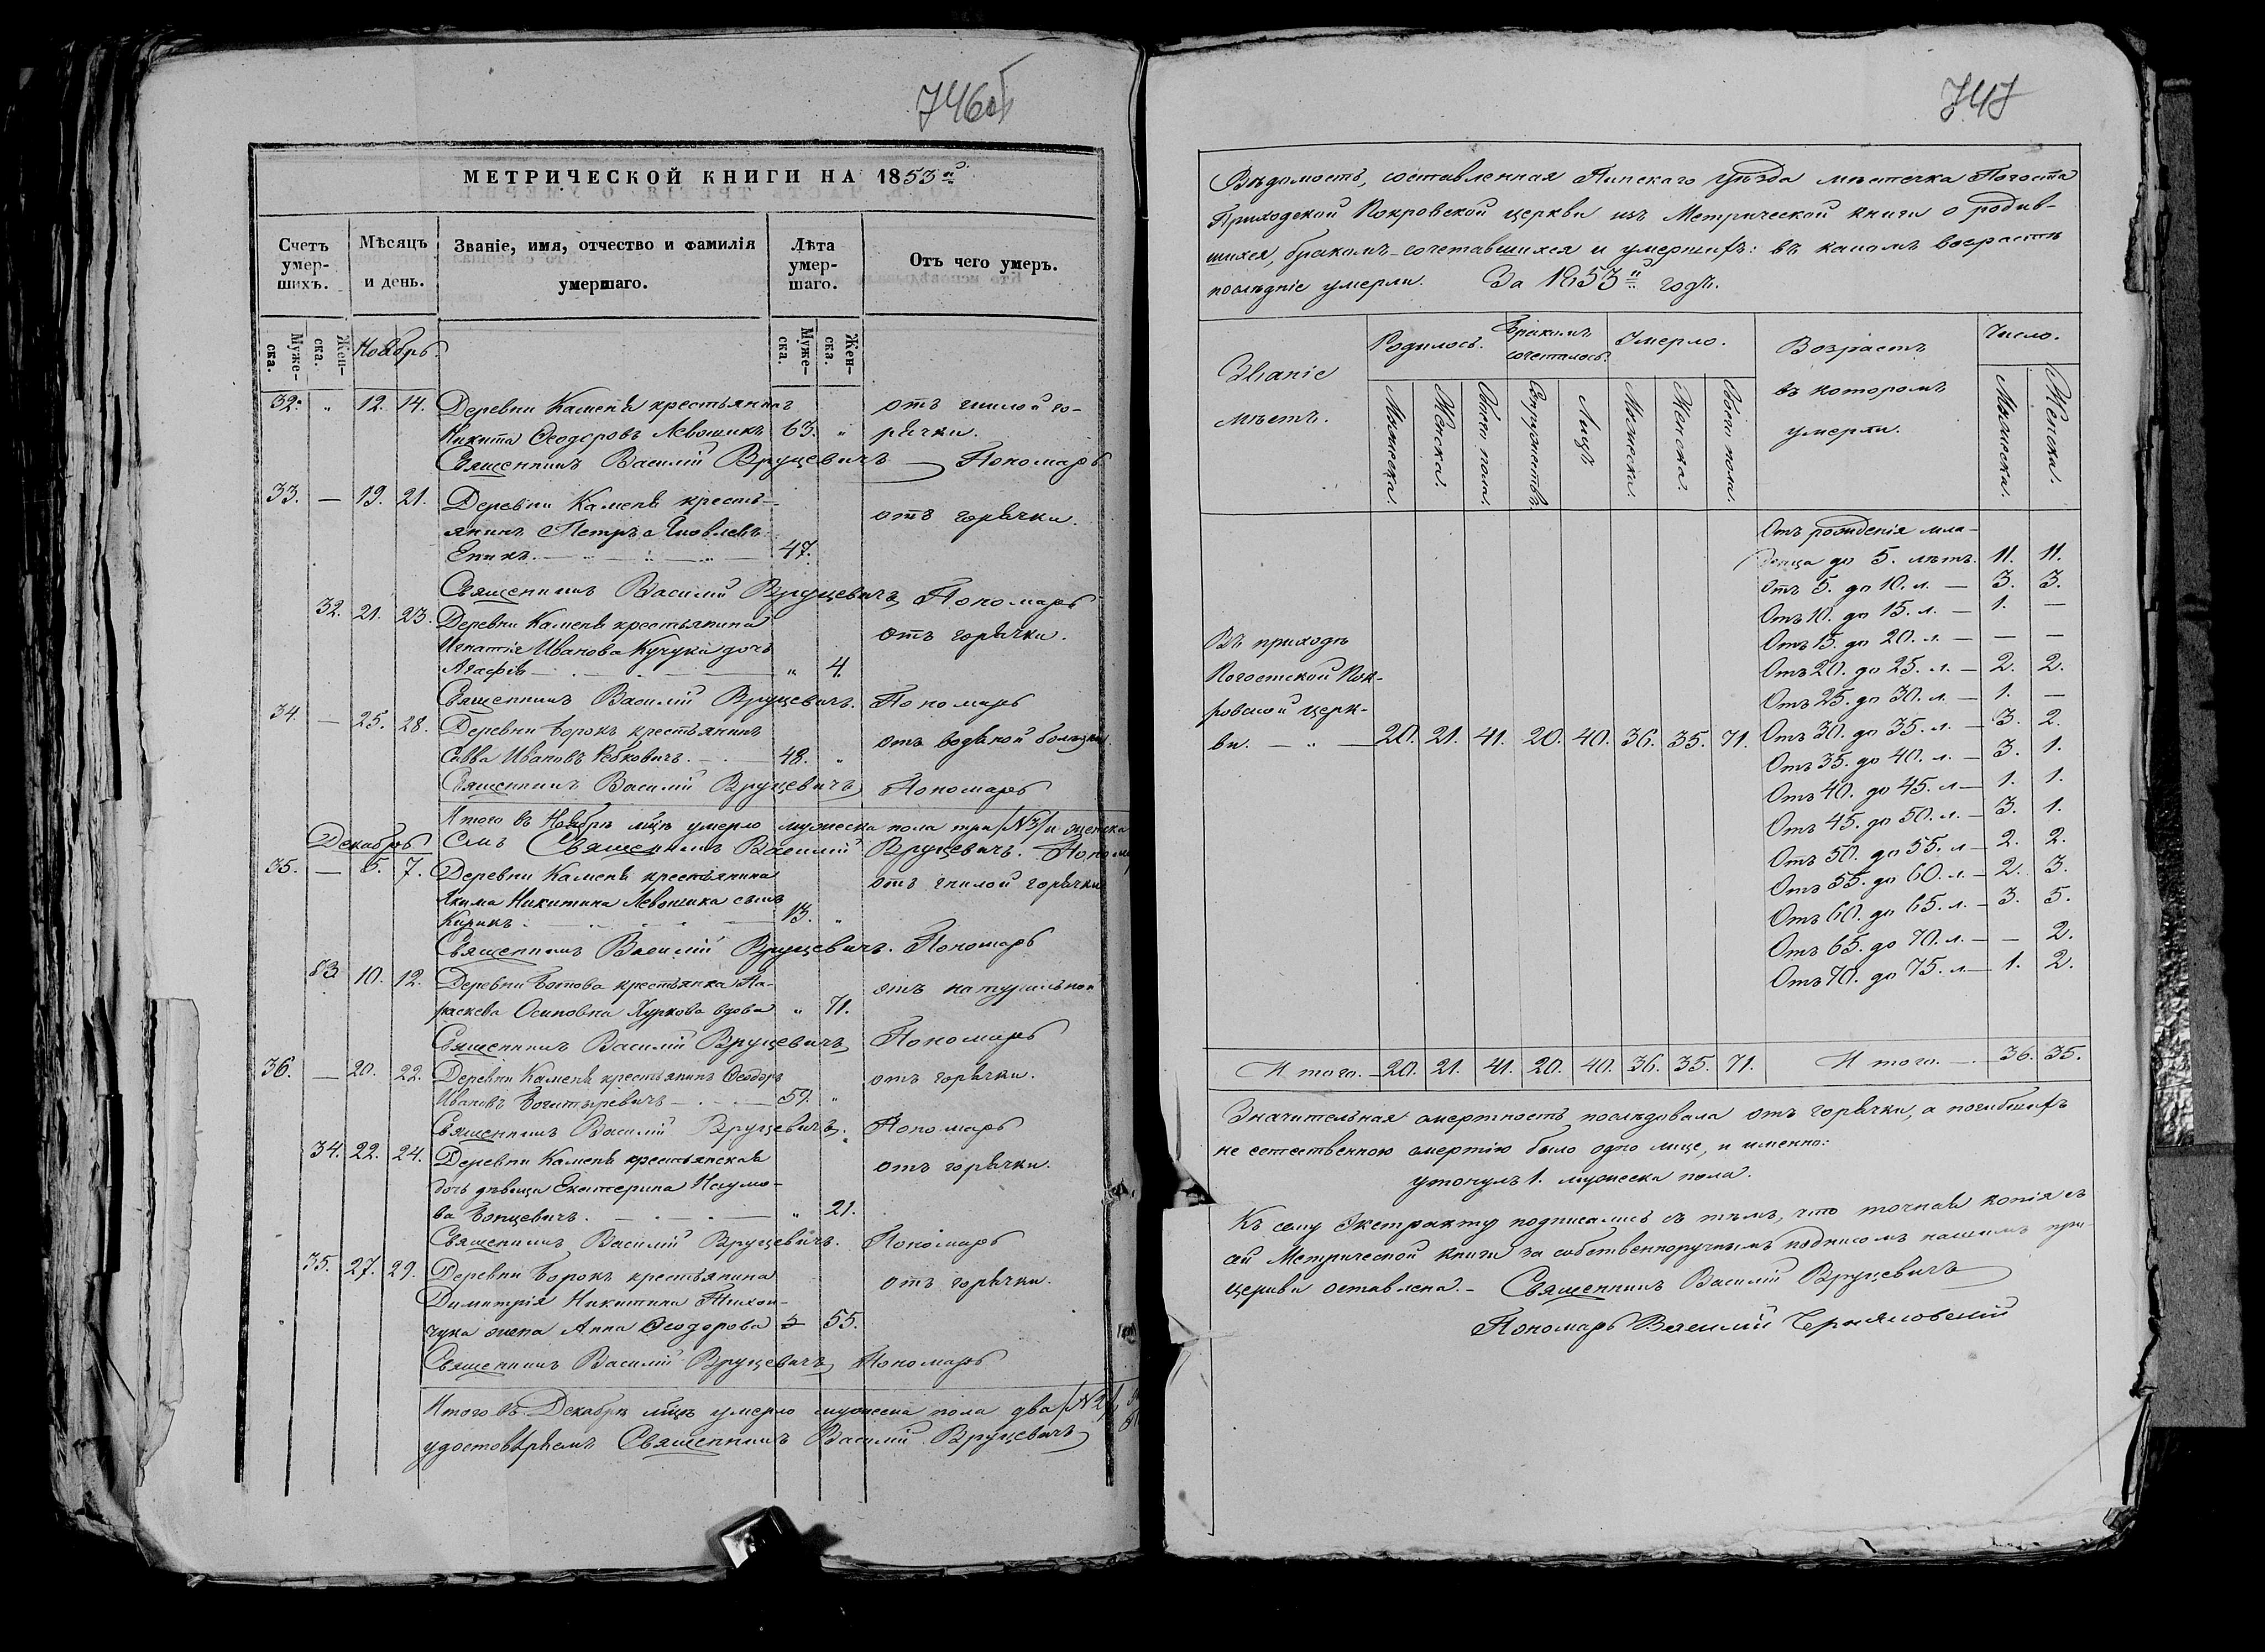 746об
МЕТРИЧЕСКОЙ КНИГИ НА 1853й
Счетъ умер-шихъ.
Мѣсяцъ и день.
Званіе, имя, отчество и фамилія умершаго.
Лѣта умер-шаго.
Отъ чего умеръ.
Муже-ска.
Жен-ска.
Ноябрь.
Муже-ска.
Жен-ска.
32. " 12. 14. Деревни Каменя крестьянинъ отъ гнилой го-
Никита Ѳеодоровъ Левошикъ 63. " рячки.
Священникъ Василій Вруцевичъ Пономарь
33. — 19. 21. Деревни Каменя кресть-
янинъ Петръ Яковлевъ отъ горячки.
Еникъ. 47.
Священникъ Василій Вруцевичъ Пономарь
32. 21. 23. Деревни Каменя крестьянина отъ горячки.
Игнатія Иванова Кучука дочь
Агафія " 4.
Священникъ Василій Вруцевичъ. Пономарь
34. — 25. 28. Деревни Борокъ крестьянинъ отъ водяной болѣзни
Савва Ивановъ Рабковичъ. 48. "
Священникъ Василій Вруцевичъ Пономарь
Итого въ Ноябрѣ мцѣ умерло мужеска пола три /№3/ и женска
Декабрь
Священникъ Василій Вруцевичъ. Поном
35. — 5. 7. Деревни Каменя крестьянина отъ гнилой горячки
Якима Никитина Левошика сынъ
Кирикъ. 13. "
Священникъ Василій Вруцевичъ. Пономарь
33 10. 12. Деревни Ботова крестьянка Па- отъ натуральной
раскева Осиповна Журкова вдова " 71.
Священникъ Василій Вруцевичъ Пономарь
36. — 20. 22. Деревни Каменя крестьянинъ Ѳеодоръ отъ горячки.
Ивановъ Богатыревичъ 59. "
Священникъ Василій Вруцевичъ. Пономарь
34. 22. 24. Деревни Каменя крестьянская отъ горячки.
дочь дѣвица Екатерина Наумо-
ва Бопцевичъ. " 21.
Священникъ Василій Вруцевичъ. Пономарь
35. 27. 29. Деревни Борокъ крестьянина отъ горячки.
Димитрія Никитина Тихон-
чука жена Анна Ѳеодорова 55.
Священникъ Василій Вруцевичъ Пономарь
Итого въ Декабрѣ мцѣ умерло мужеска пола два /№2/
удостовѣряемъ Священникъ Василій Вруцевичъ
747
Вѣдомость, составленная Пинскаго уѣзда мѣстечка Погоста
Приходской Покровской церкви изъ Метрической книги о родив-
шихся, бракомъ-сочетавшихся и умершихъ: въ какомъ возрастѣ
послѣдніе умерли. За 1853й годъ.
Званіе мѣстъ.
Родилось.
Бракомъ сочеталось.
Умерло.
Возрастъ въ которомъ умерли.
Число.
Мужеска.
Женска.
Обоего пола.
Супружествъ.
Лицъ
Мужеска.
Женска.
Обоего пола.
Мужеска.
Женска.
Отъ рожденія мла-
денца до 5. лѣтъ. 11. 11.
Отъ 5. до 10. л. — 3. 3.
Отъ 10. до 15. л. — 1. —
Отъ 15. до 20. л. — — —
Отъ 20. до 25. л. — 2. 2.
Отъ 25. до 30. л. — 1. —
Отъ 30. до 35. л. — 3. 2.
Отъ 35. до 40. л. — 3. 1.
Отъ 40. до 45. л — 1. 1.
Отъ 45. до 50. л. — 3. 1.
Отъ 50. до 55. л — 2. 2.
Отъ 55. до 60. л. — 2. 3.
Отъ 60. до 65. л. — 3. 5.
Отъ 65. до 70. л. — — 2.
Отъ 70. до 75. л — 1. 2.
Въ приходѣ
Погостской Пок-
ровской церк-
ви. — " — 20. 21. 41. 20. 40. 36. 35. 71.
Итого. — 20. 21. 41. 20. 40. 36. 35. 71. Итого. — 36. 35.
Значительная смертность послѣдовала отъ горячки, а погибшихъ
не естественною смертію было одно лице, и именно:
утонулъ 1. мужеска пола.
Къ сему Экстракту подписались съ тѣмъ, что точная копія съ
сей Метрической книги за собственноручнымъ подписомъ нашимъ при
церкви оставлена. — Священникъ Василій Вруцевичъ
Пономарь Василій Черняловскій